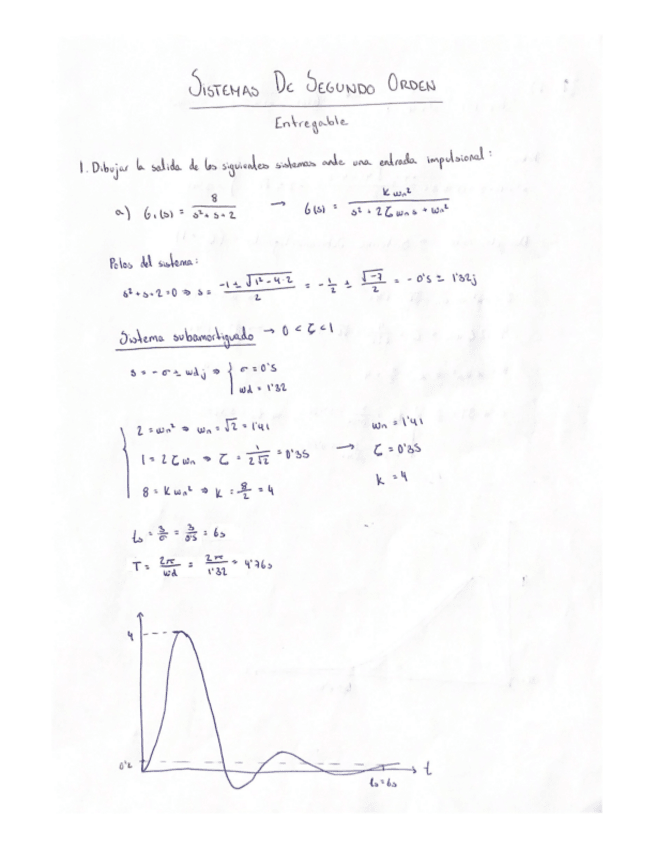 SISTEMAS DE SEGUNDO ORDEN
Entregable
1. Dibujar la salida de los siguientes sistemas ante una entrada impulsional:
a) G₁(s) = 8 / (s² + s + 2) → G(s) = K ωn² / (s² + 2ζωn s + ωn²)
Polos del sistema:
s² + s + 2 = 0 ⇒ s = (-1 ± √(1² - 4·2)) / 2 = -1/2 ± √-7 / 2 = -0'5 ± 1'32j
Sistema subamortiguado → 0 < ζ < 1
s = -σ ± ωd j ⇒ { σ = 0'5
ωd = 1'32
2 = ωn² ⇒ ωn = √2 = 1'41
1 = 2ζωn ⇒ ζ = 1 / (2√2) = 0'35
8 = K ωn² ⇒ K = 8/2 = 4
→
ωn = 1'41
ζ = 0'35
K = 4
ts = 3/σ = 3/0'5 = 6s
T = 2π/ωd = 2π/1'32 = 4'76s
4
0'2
ts = 6s
t